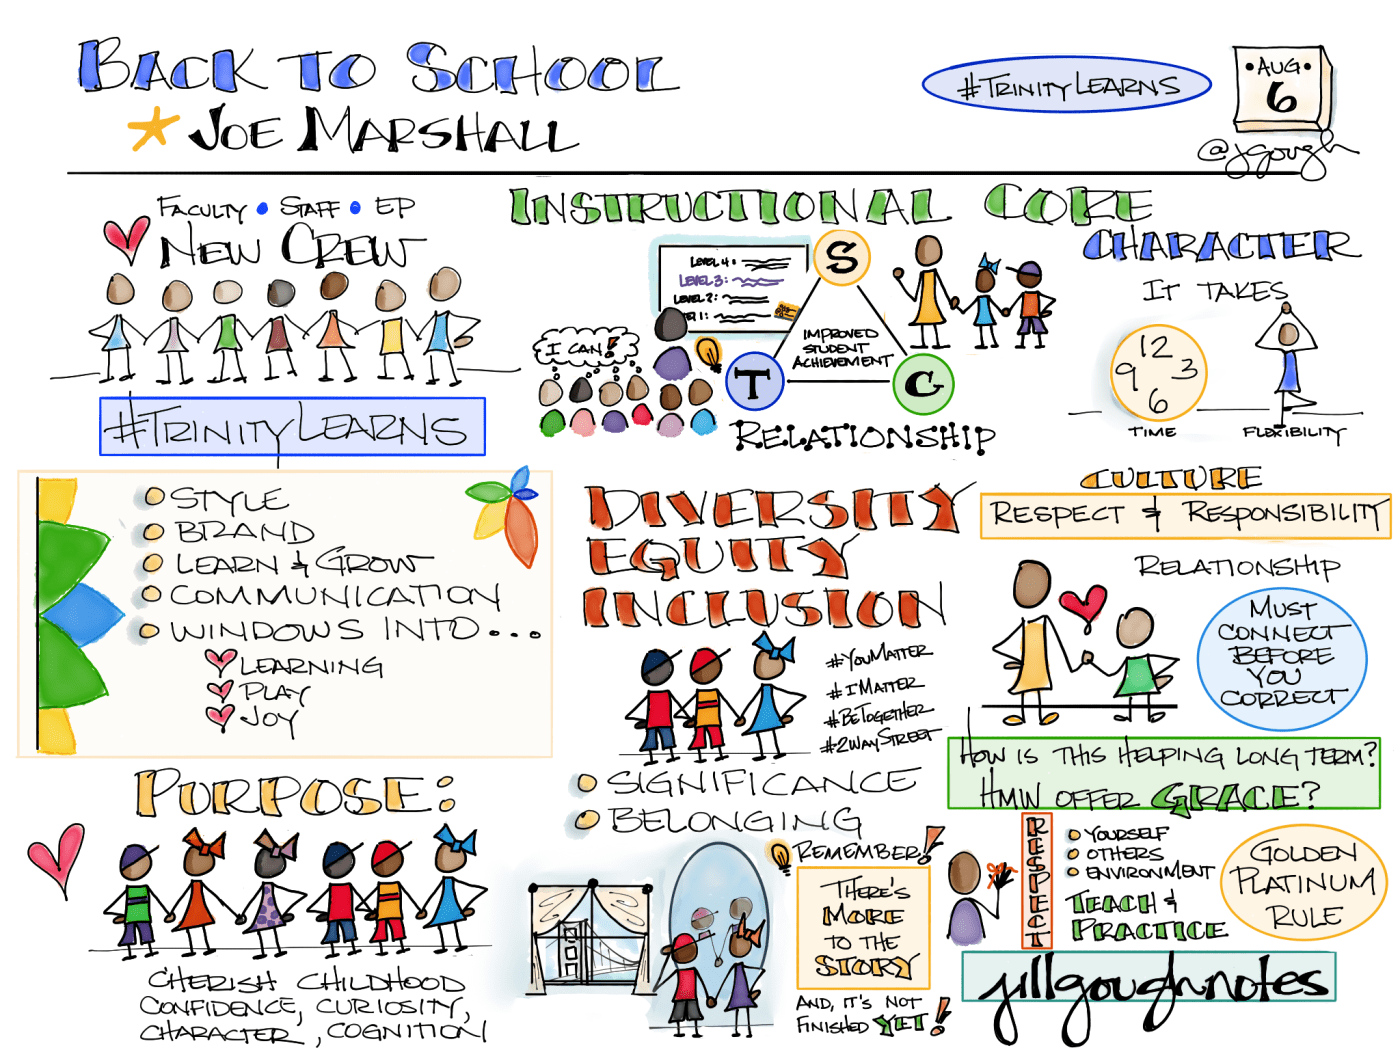 BACK TO SCHOOL
JOE MARSHALL
#TRINITYLEARNS
• AUG •
6
@jgough
FACULTY • STAFF • EP
NEW CREW
#TRINITYLEARNS
STYLE
BRAND
LEARN & GROW
COMMUNICATION
WINDOWS INTO...
LEARNING
PLAY
JOY
PURPOSE:
CHERISH CHILDHOOD
CONFIDENCE, CURIOSITY,
CHARACTER, COGNITION
INSTRUCTIONAL CORE
LEVEL 4:
LEVEL 3:
LEVEL 2:
EL 1:
I CAN!
S
T
C
IMPROVED
STUDENT
ACHIEVEMENT
RELATIONSHIP
CHARACTER
IT TAKES
12
9 3
6
TIME
FLEXIBILITY
DIVERSITY
EQUITY
INCLUSION
#YOUMATTER
#IMATTER
#BETOGETHER
#2WAYSTREET
SIGNIFICANCE
BELONGING
REMEMBER!
THERE'S
MORE
TO THE
STORY
AND, IT'S NOT
FINISHED YET!
CULTURE
RESPECT & RESPONSIBILITY
RELATIONSHIP
MUST
CONNECT
BEFORE
YOU
CORRECT
HOW IS THIS HELPING LONG TERM?
HMW OFFER GRACE?
RESPECT
YOURSELF
OTHERS
ENVIRONMENT
TEACH &
PRACTICE
GOLDEN
PLATINUM
RULE
jillgoughnotes